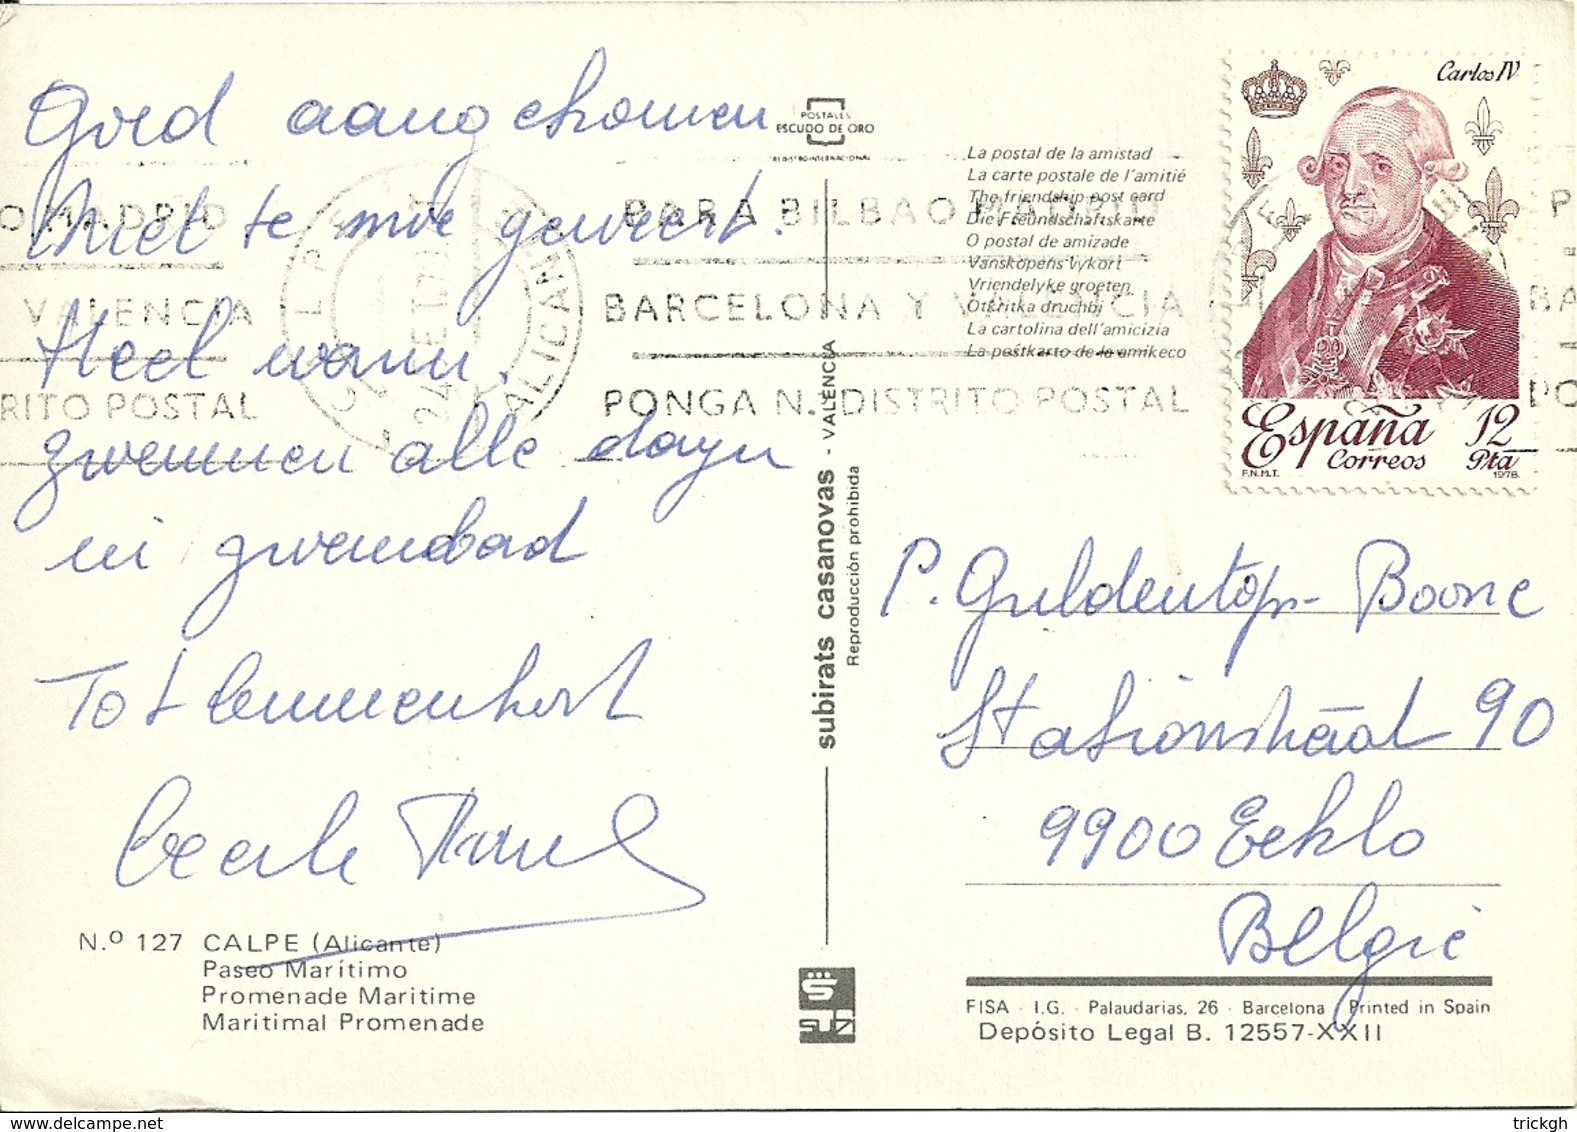 Goed aangekomen
Niet te moe geweest.
Heel warm.
zwemmen alle dagen
in zwembad
Tot
Cecile
N.º 127 CALPE (Alicante)
Paseo Marítimo
Promenade Maritime
Maritimal Promenade
POSTALES
ESCUDO DE ORO
REGISTRO INTERNACIONAL
subirats casanovas - VALENCIA
Reproducción prohibida
La postal de la amistad
La carte postale de l'amitié
The friendship post card
Die Freundschaftskarte
O postal de amizade
Vanskopens vykort
Vriendelyke groeten
Otkritka druchbi
La cartolina dell'amicizia
La poŝtkarto de la amikeco
O MADRID
VALENCIA
RITO POSTAL
CALPE
24 ENE 79
ALICANTE
PARA BILBAO MADRID
BARCELONA Y VALENCIA
PONGA N. DISTRITO POSTAL
P
BA
PO
Carlos IV
España
Correos
12
Pta
F.N.M.T.
1978.
P. Guldentops - Boone
Stationstraat 90
9900 Eeklo
België
FISA - I.G. - Palaudarias, 26 - Barcelona - Printed in Spain
Depósito Legal B. 12557-XXII
trickgh